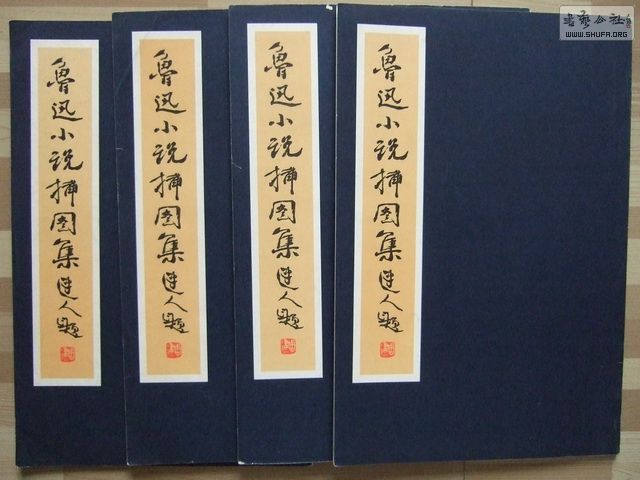 鲁迅小说插图集 建人题
鲁迅小说插图集 建人题
鲁迅小说插图集 建人题
鲁迅小说插图集 建人题
書藝公社
WWW.SHUFA.ORG